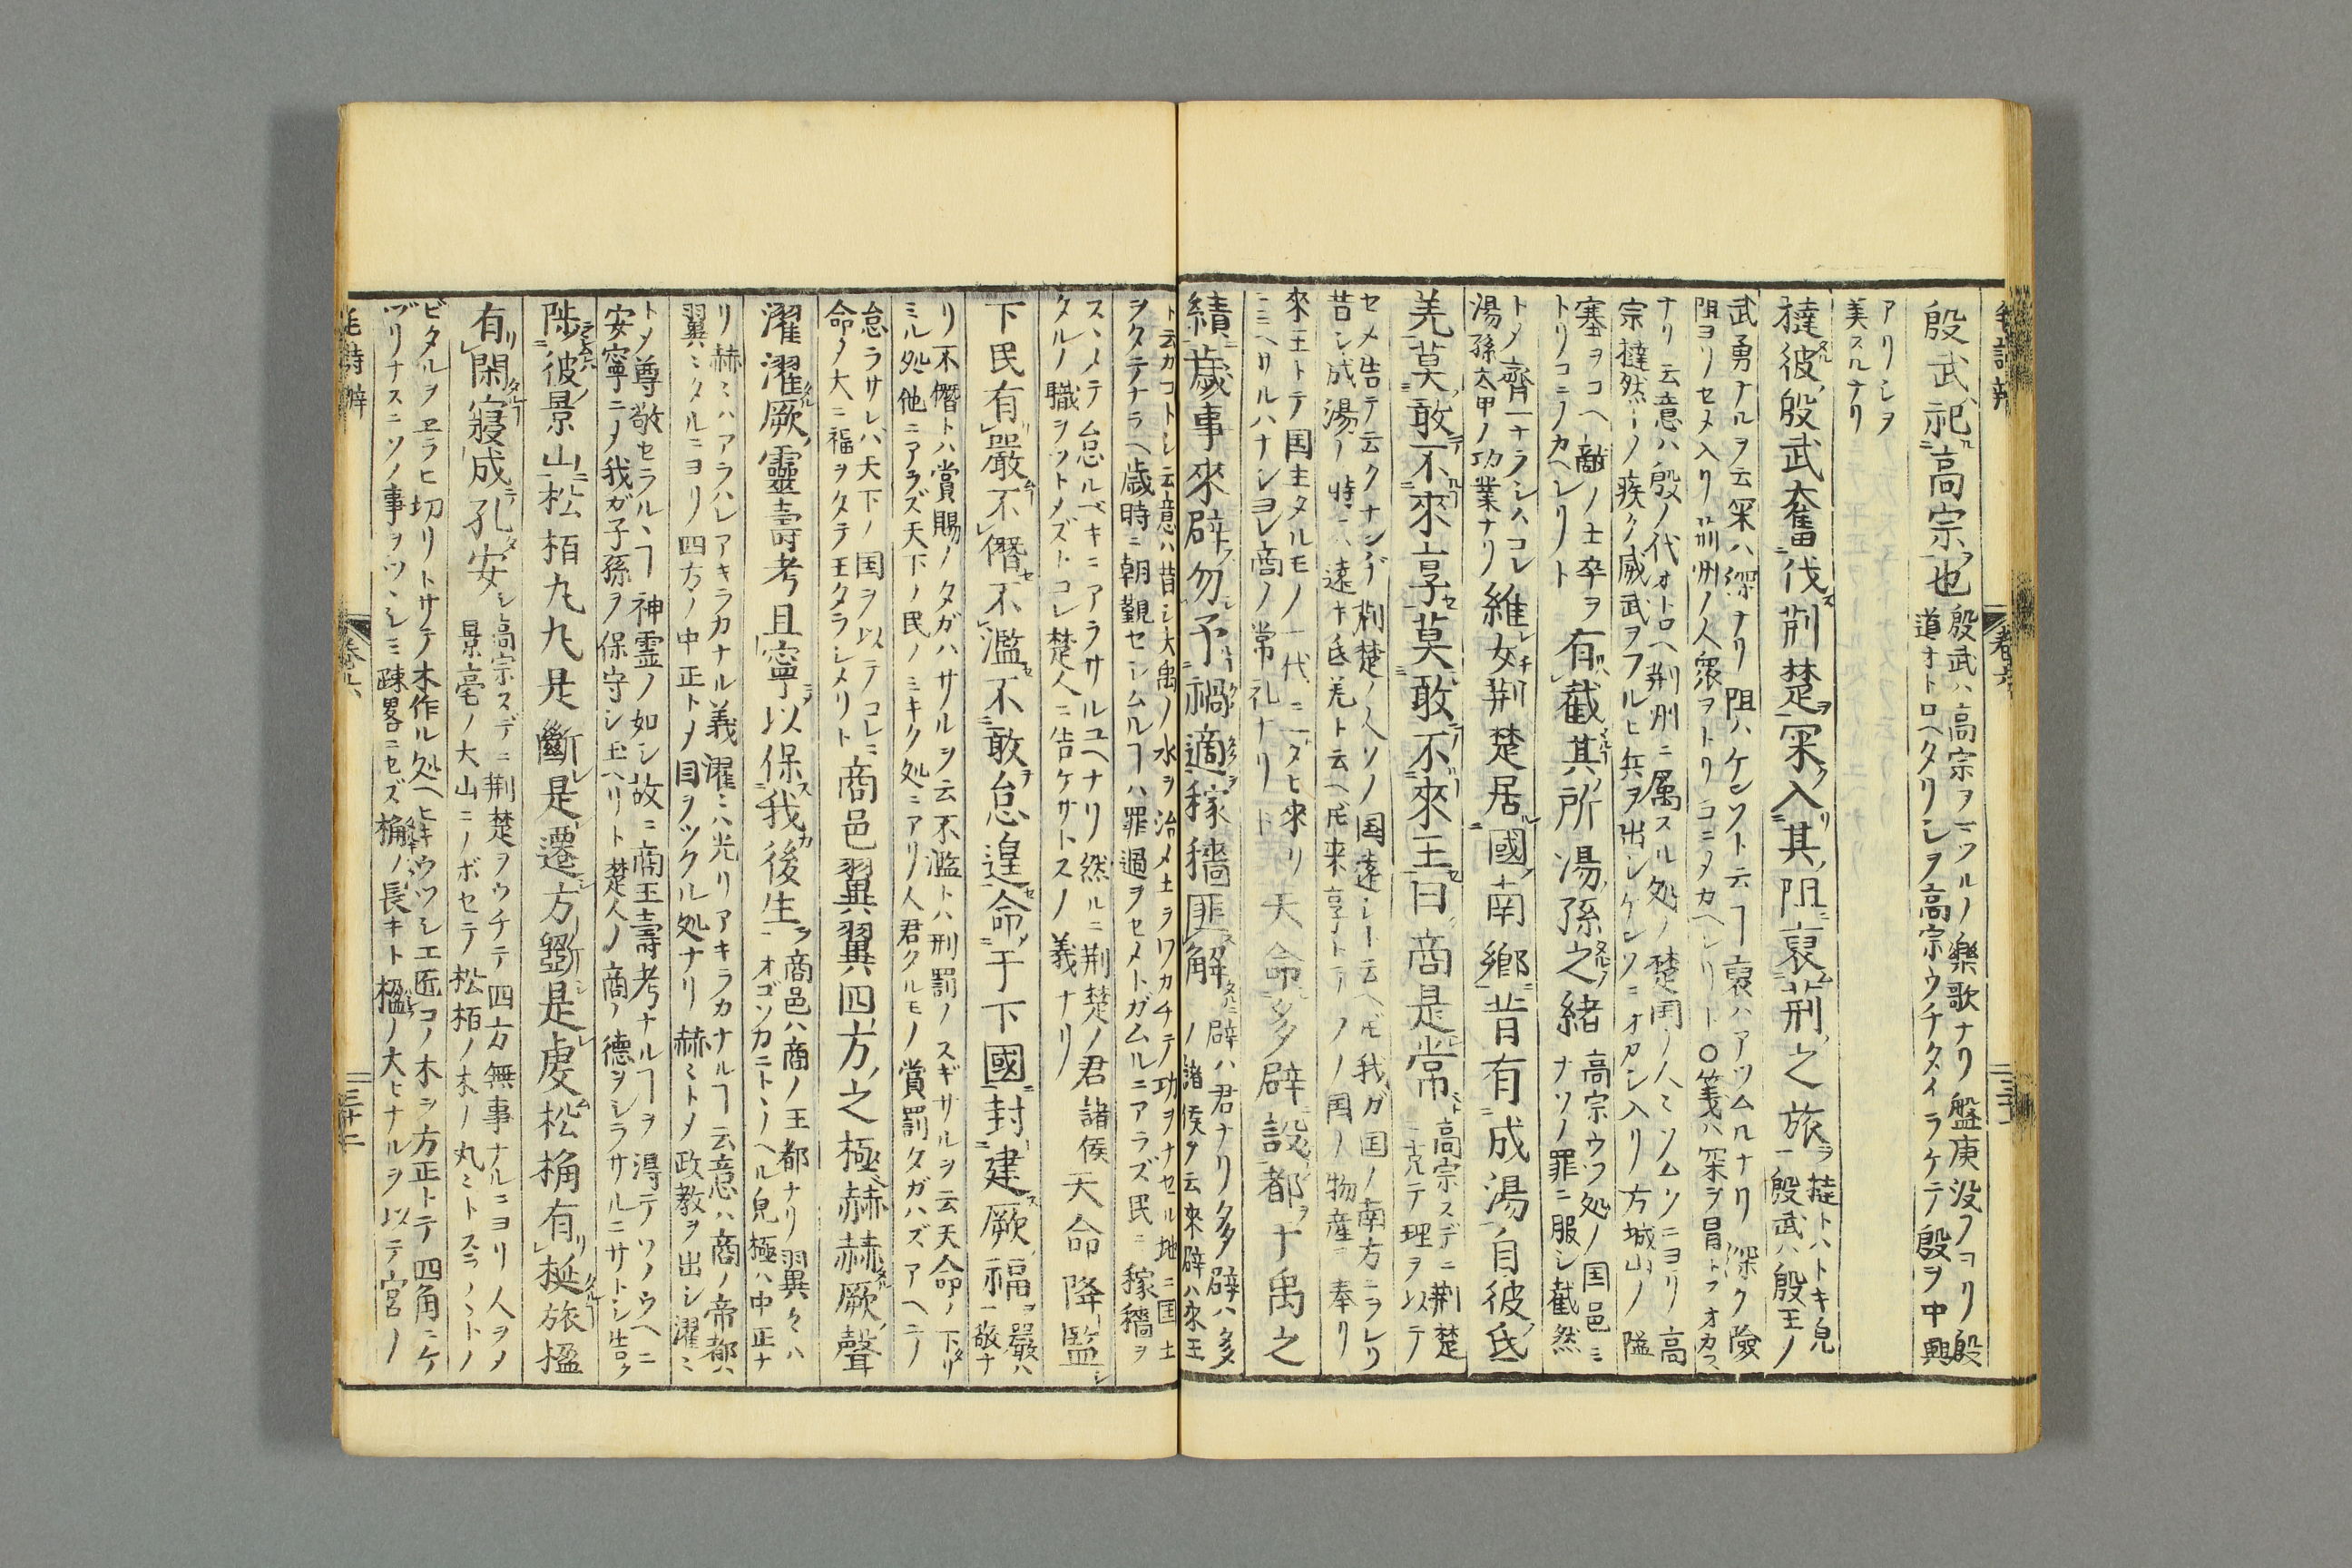 殷武祀高宗也
殷武ハ高宗ヲマツルノ樂歌ナリ盤庚没メヨリ殷
道オトロヘタリシヲ高宗ウチタイラケテ殷ヲ中興
アリシヲ
美スルナリ
撻彼殷武奮伐荆楚罙入其阻裒荊之旅
撻トハトキ皃
殷武ハ殷王ノ
武勇ナルヲ云罙ハ深ナリ阻ハケンソト云ヿ裒ハアツムルナリ深ク險
阻ヨリセメ入リ荊州ノ人衆ヲトリコニメカヘシリト〇箋ハ罙ヲ冒トフオカス
ナリ云意ハ殷ノ代オトロヘ荆州ニ属スル処ノ楚国ノ人ミソムソニヨリ高
宗撻然トノ疾ク威武ヲフルヒ兵ヲ出シケンソニオカシ入リ方城山ノ隘
塞ヲコヘ敵ノ士卒ヲ
トリコニメカヘレリト
有截其所湯孫之緒
高宗ウツ処ノ国邑ミ
ナソノ罪ニ服シ截然
トメ齊一ナラシハコレ
湯孫太甲ノ功業ナリ
維女荆楚居國南鄉昔有成湯自彼氐
羌莫敢不來享莫敢不來王曰商是常
高宗スデニ荆楚
ニ克テ理ヲ以テ
セメ告テ云クナンヂ荊楚ノ人ソノ国遠シト云ヘ𪜈我ガ国ノ南方ニヲレリ
昔シ成湯ノ時ニハ遠キ氐羌ト云ヘ𪜈来享トテソノ国ノ物産ヲ奉リ
來王トテ国主タルモノ一代ニ一タヒ來リ
ミヘサルハナシヨレ商ノ常礼ナリト
天命多辟設都于禹之
績歲事來辟勿予禍適稼穡匪解
辟ハ君ナリ多辟ハ多
ノ諸侯ヲ云來辟ハ來王
ト云カコトシ云意ハ昔シ大禹ノ水ヲ治メ土ヲワカチテ功ヲナセル地ニ国土
ヲタテナラヘ歳時ニ朝覲セシムルヿハ罪過ヲセメトガムルニアラズ民ニ稼穡ヲ
スヽメテ怠ルベキニアラサルユヘナリ然ルニ荆楚ノ君諸侯
タルノ職ヲツトメズトコレ楚人ニ告ケサトスノ義ナリ
天命降監
下民有嚴不僭不濫不敢怠遑命于下國封建厥福
嚴ハ
敬ナ
リ不僭トハ賞賜ノタガハサルヲ云不濫トハ刑罰ノスギサルヲ云天命ノ下リ
ミル処他ニアラズ天下ノ民ノミキク処ニアリ人君タルモノ賞罰タガハズアヘテ
怠ラサレハ天下ノ国ヲ以テコレニ
命メ大ニ福ヲタテ王タラシメリト
商邑翼翼四方之極赫赫厥聲
濯濯厥靈壽考且寧以保我後生
商邑ハ商ノ王都ナリ翼々ハ
オゴソカニトヽノヘル皃極ハ中正ナ
リ赫ミハアラハレアキラカナル義濯ミハ光リアキラカナルヿ云意ハ商ノ帝都ハ
翼ミタルニヨリ四方ノ中正トメ目ヲツクル処ナリ赫ミトメ政教ヲ出シ濯ミ
トメ尊敬セラルヽヿ神霊ノ如シ故ニ商王壽考ナルヿヲ得テソノウヘニ
安寧ニメ我ガ子孫ヲ保守シ玉ヘリト楚人ノ商ノ德ヲシラサルニサトシ告ク
陟彼景山松栢丸丸是斷是遷方斲是虔松桷有梴旅楹
有閑寢成孔安
高宗スデニ荆楚ヲウチテ四方無事ナルニヨリ人ヲメ
景亳ノ大山ニノボセテ松栢ノ木ノ丸ミトスラノヽトノ
ビタルヲヱラヒ切リトサテ木作ル処ヘヒキウツシ工匠コノ木ヲ方正トテ四角ニケ
ヅリナスニソノ事ヲツヽシミ踈畧ニセズ桷ノ長キト楹ノ大ヒナルヲ以テ宮ノ
毛詩辨
卷六
三十二